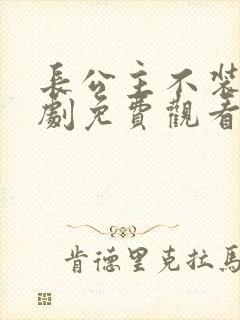 長公主不裝
劇免費觀看
肯德里克拉馬